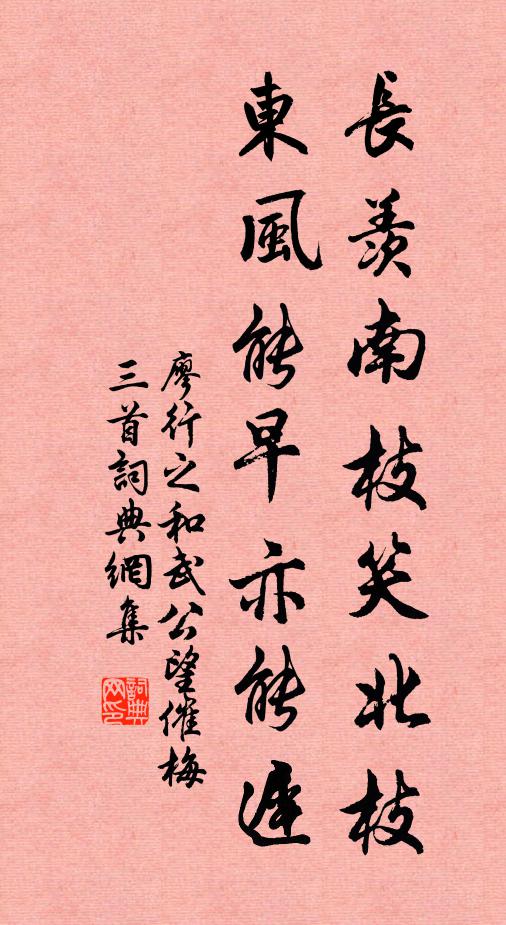 長羨南枝笑北枝
東風能早亦能遲
廖行之和武公望催梅
三首詞典網集
詞典
网印